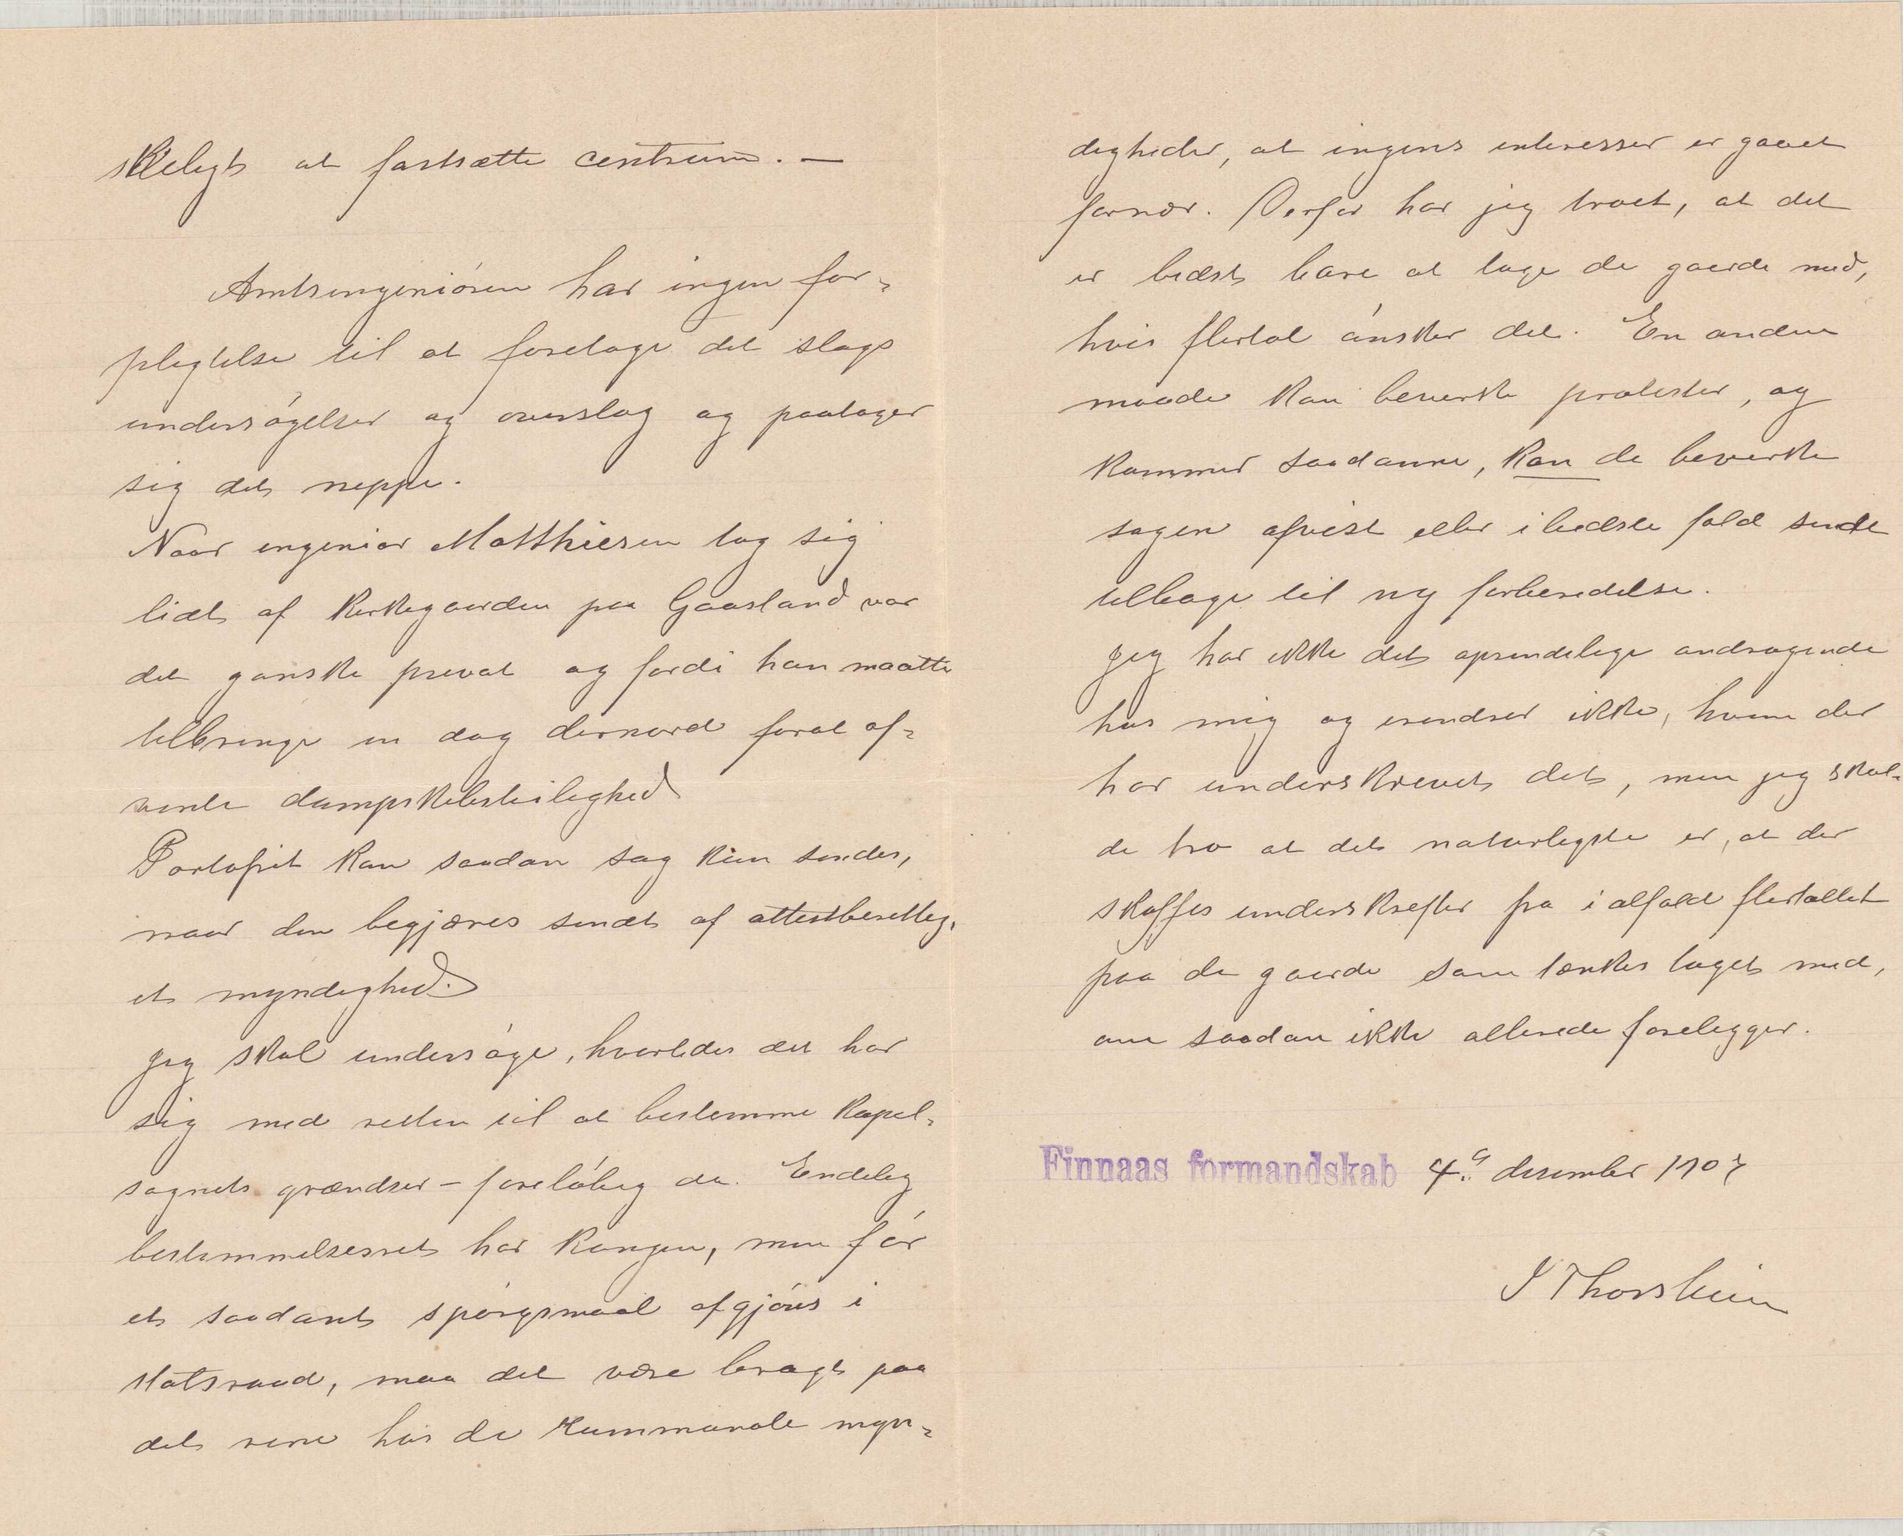 skeligt at fastsætte centrum. —
Amtsingeniøren har ingen for-
pligtelse til at foretage det slags
undersøgelser og overslag og paatager
sig det neppe.
Naar ingeniør Matthiesen tog sig
lidt af kirkegaarden paa Gaasland var
det ganske privat og fordi han maatte
tilbringe en dag dernord forat af-
vente dampskibsleilighed
Portofrit kan saadan sag kun sendes,
naar den begjæres sendt af attestberettig-
et myndighed.
Jeg skal undersøge, hvorledes det har
sig med retten til at bestemme kapel-
sognets grændser – foreløbig da. Endelig
bestemmelsesret har kongen, men før
et saadant spørgsmaal afgjøres i
statsraad, maa det være bragt paa
det rene hos de kommunale myn-
digheder, at ingens interesser er gaaet
fornær. Derfor har jeg troet, at det
er bedst bare at tage de gaarde med,
hvis flertal ønsker det. En anden
maade kan bevirke protester, og
kommer saadanne, kan de bevirke
sagen afvist eller i bedste fald sendt
tilbage til ny forberedelse.
Jeg har ikke det oprindelige andragende
hos mig og erindrer ikke, hvem der
har underskrevet det, men jeg skul-
de tro at det naturligste er, at der
skaffes underskrifter fra i alfald flertallet
paa de gaarde som tænkes taget med,
om saadan ikke allerede foreligger.
Finnaas formandskab 4de desember 1907
J Thorsheim